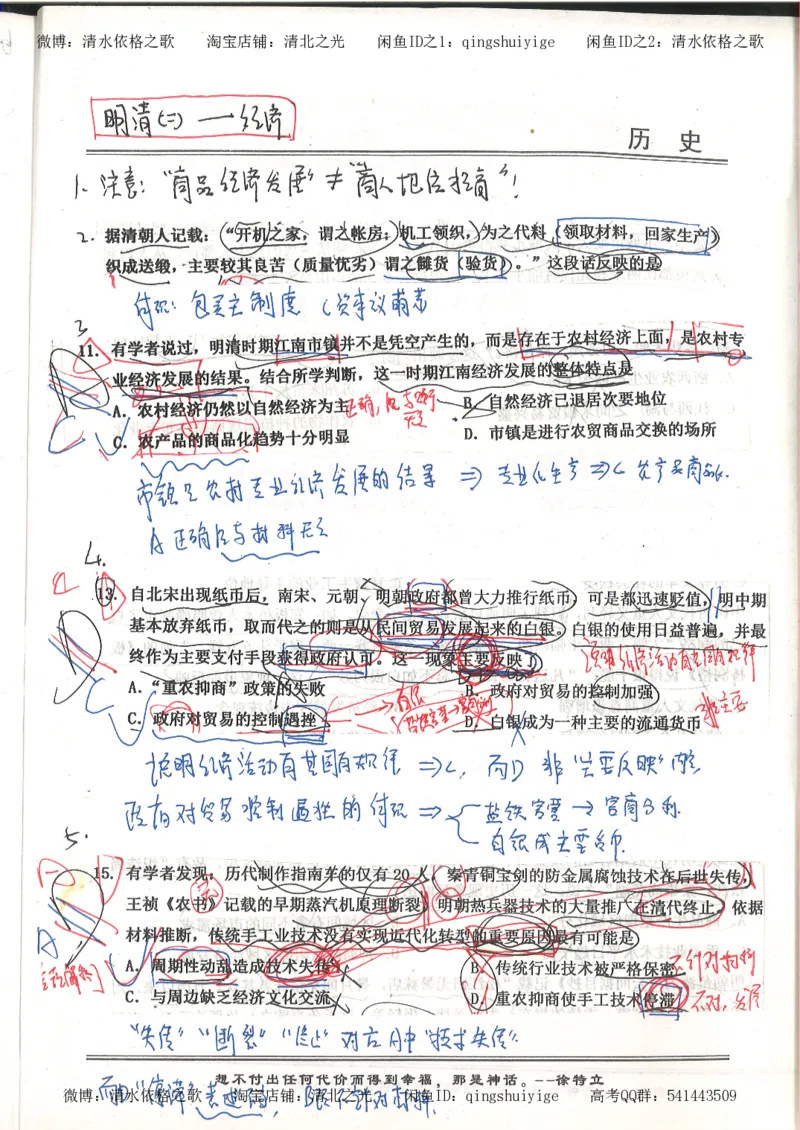 微博：清水依格之歌 淘宝店铺：清北之光 闲鱼ID之1：qingshuiyige 闲鱼ID之2：清水依格之歌
明清(二) — 经济
历 史
1. 注意："商品经济发展" ≠ "商人地位抬高"！
2. 据清朝人记载："开机之家，谓之帐房；机工领织，为之代料（领取材料，回家生产）
织成送缎，主要较其良苦（质量优劣）谓之雠货（验货）。"这段话反映的是
体现：包买主制度（资本主义萌芽
3
11. 有学者说过，明清时期江南市镇并不是凭空产生的，而是存在于农村经济上面，是农村专
业经济发展的结果。结合所学判断，这一时期江南经济发展的整体特点是
A. 农村经济仍然以自然经济为主 正确，但与材料无关 B. 自然经济已退居次要地位
C. 农产品的商品化趋势十分明显 D. 市镇是进行农贸商品交换的场所
C
市镇是农村专业经济发展的结果 ⇒ 专业化生产 ⇒ C 农产品商品化.
A 正确但与材料无关
4.
13. 自北宋出现纸币后，南宋、元朝、明朝政府都曾大力推行纸币，可是都迅速贬值，明中期
基本放弃纸币，取而代之的则是从民间贸易发展起来的白银。白银的使用日益普遍，并最
终作为主要支付手段获得政府认可。这一现象主要反映了
说明经济活动有其固有规律
A. "重农抑商"政策的失败 B. 政府对贸易的控制加强
C. 政府对贸易的控制遇挫 D. 白银成为一种主要的流通货币
非主要
C
说明经济活动有其固有规律 ⇒ C, 而D 非"主要反映"内容
政府对贸易控制遇挫的体现 ⇒ 盐铁官营 → 官商分利
白银成主要货币.
5.
15. 有学者发现：历代制作指南车的仅有20人，秦青铜宝剑的防金属腐蚀技术在后世失传，
王祯《农书》记载的早期蒸汽机原理断裂，明朝热兵器技术的大量推广在清代终止。依据
材料推断，传统手工业技术没有实现近代化转型的重要原因最有可能是
A. 周期性动乱造成技术失传 B. 传统行业技术被严格保密 不针对材料
C. 与周边缺乏经济文化交流 D. 重农抑商使手工技术停滞 不对，发展
A
"失传""断裂""终止"对应A中"技术失传"
想不付出任何代价而得到幸福，那是神话。--徐特立
微博：清水依格之歌 淘宝店铺：清北之光 闲鱼ID：qingshuiyige 高考QQ群：541443509